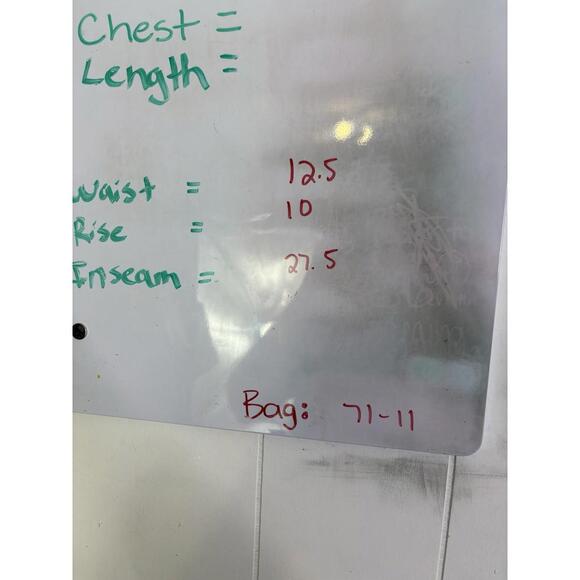 Chest =
Length =
Waist = 12.5
Rise = 10
Inseam = 27.5
Bag: 71-11